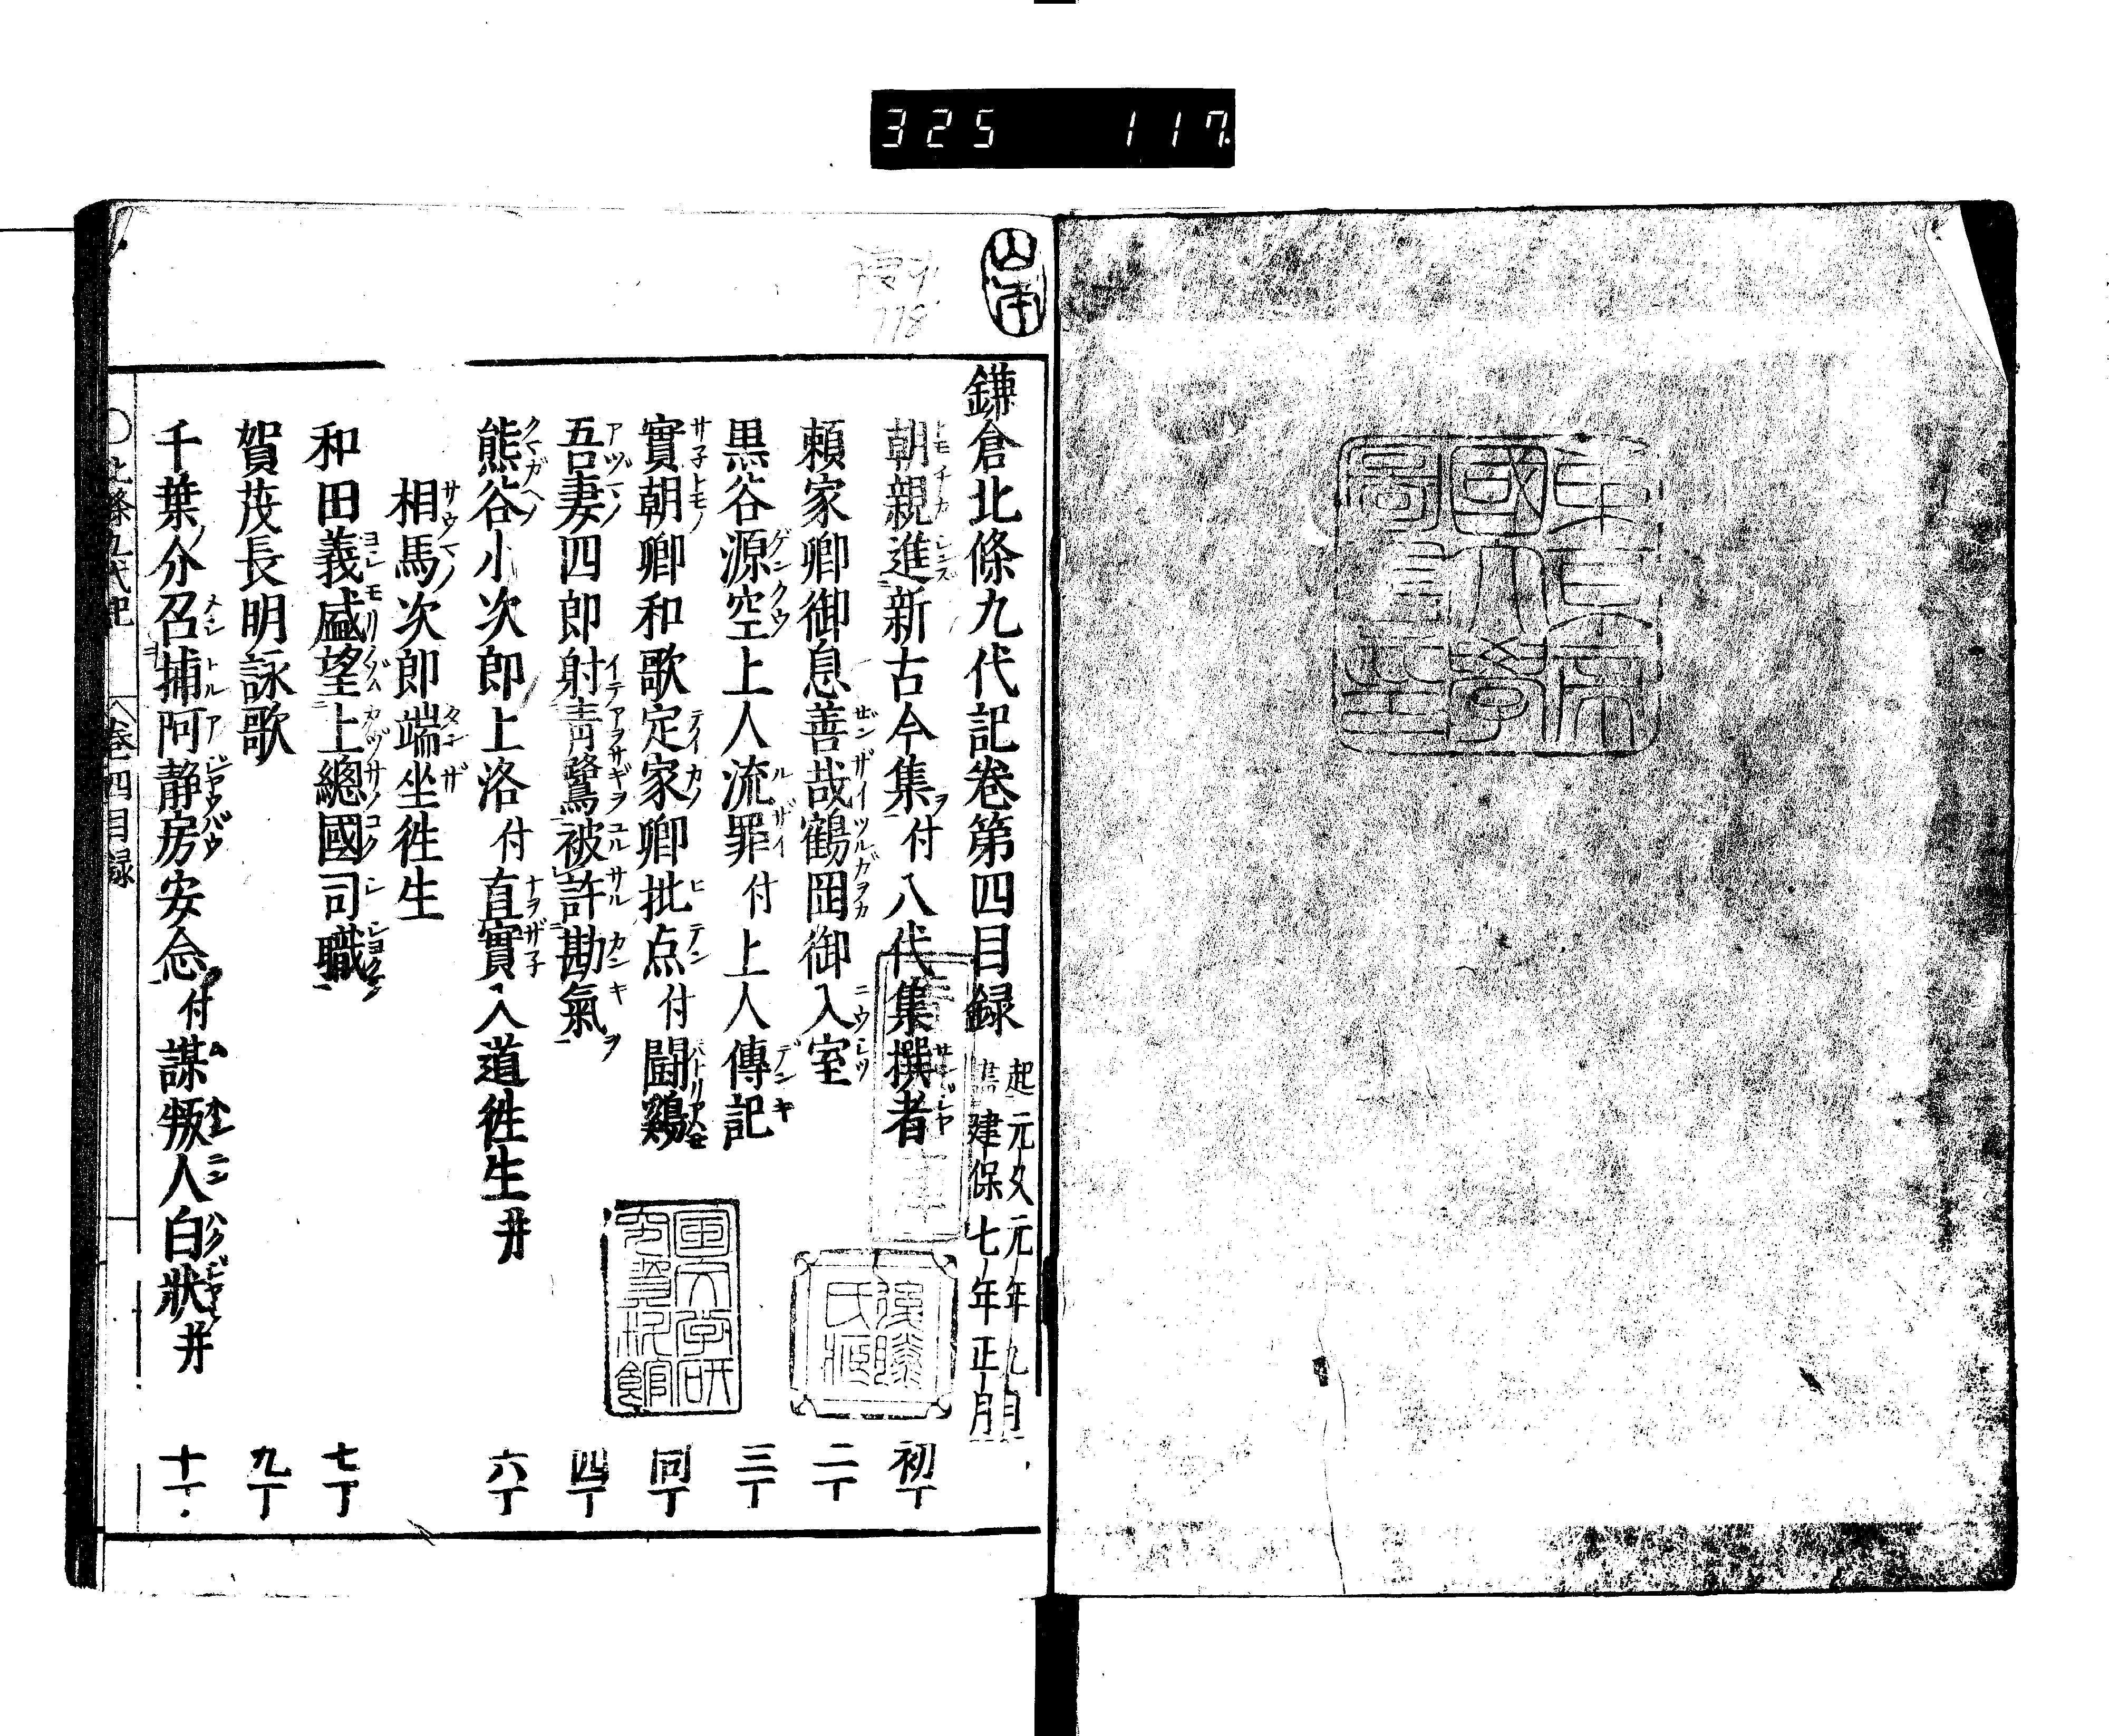 325 117
東京帝
國大學
圖書印
鎌倉北條九代記卷第四目録
起元久元年九月
盡建保七年正月
朝親進新古今集付八代集撰者 初丁
頼家卿御息善哉鶴岡御入室 二丁
黒谷源空上人流罪付上人傳記 三丁
實朝卿和歌定家卿批点付鬪鷄 同丁
吾妻四郎射青鷺被許勘氣 四丁
熊谷小次郎上洛付直實入道徃生并 六丁
相馬次郎端坐徃生
和田義盛望上總國司職 七丁
賀茂長明詠歌 九丁
千葉介召捕阿静房安念付謀叛人白狀并 十丁
国文学研
究資料館
後藤
氏
北條九代記 卷四目録